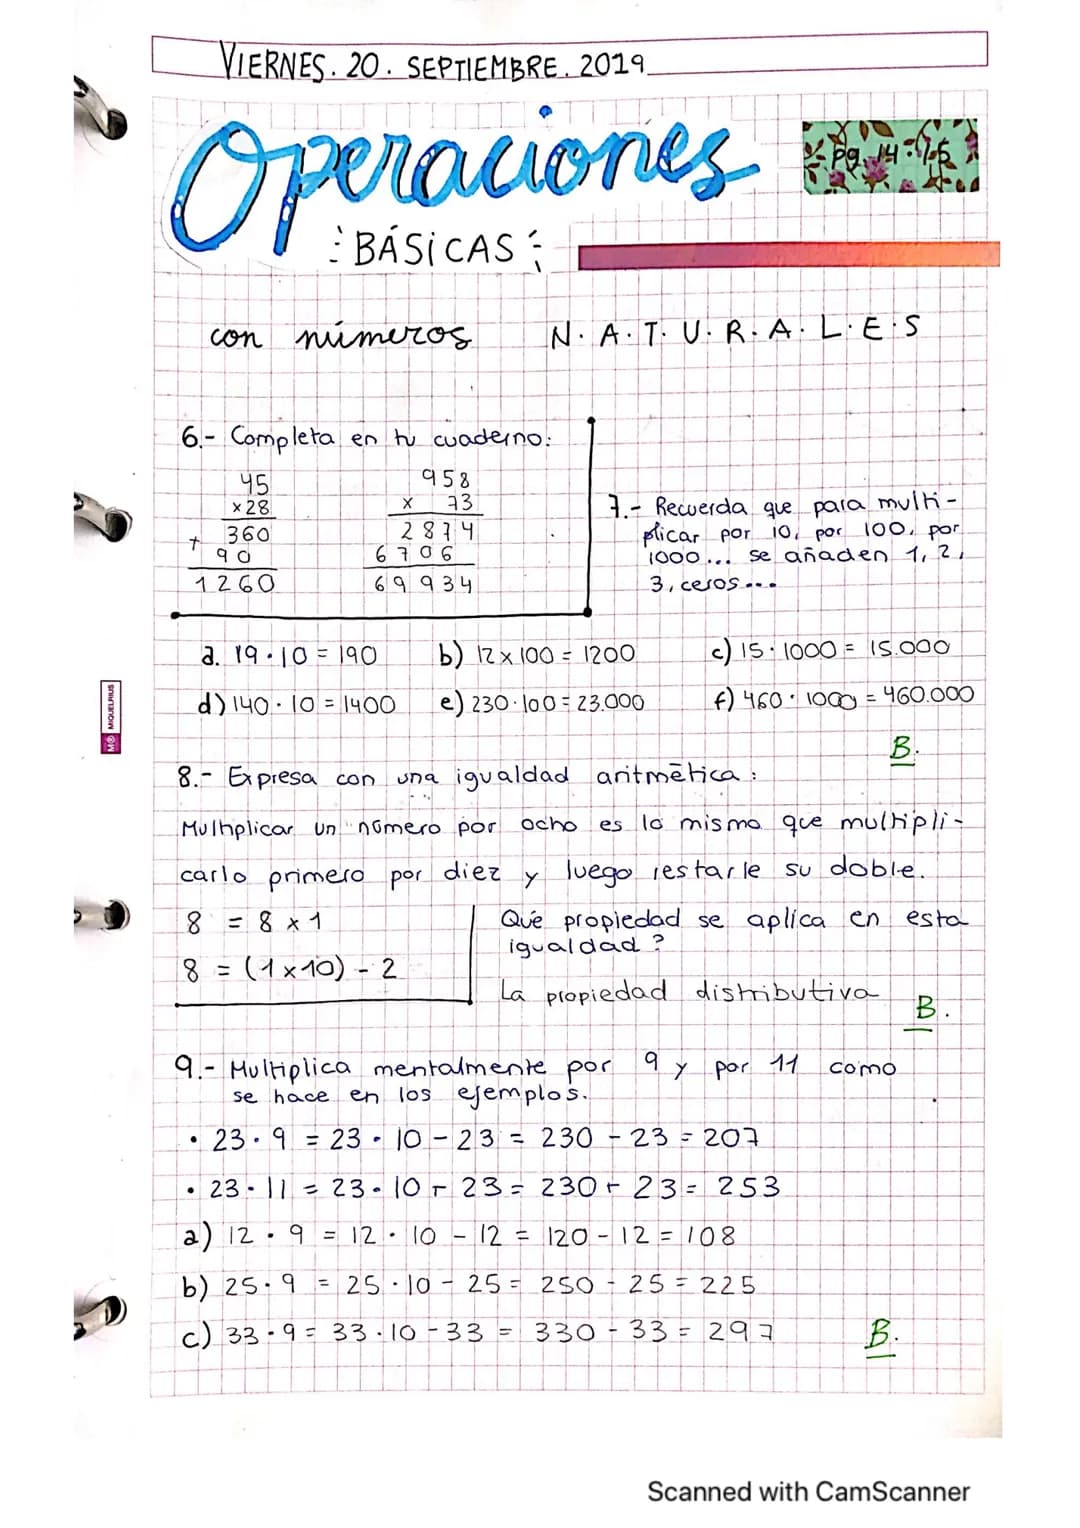 VIERNES. 20. SEPTIEMBRE. 2019
Operaciones
pg. 14-15
BÁSICAS
con números N.A.T.U.R.A.L.E.S
6.- Completa en tu cuaderno:
45
x28
360
+ 90
1260
958
x 73
2874
6706
69934
7.- Recuerda que para multi-
plicar por 10, por 100, por
1000... se añaden 1, 2,
3, ceros...
a. 19·10 = 190 b) 12x100 = 1200 c) 15·1000 = 15.000
d) 140·10 = 1400 e) 230·100 = 23.000 f) 460·1000 = 460.000
B.
8.- Expresa con una igualdad aritmética:
Multiplicar un número por ocho es lo mismo que multipli-
carlo primero por diez y luego restarle su doble.
8 = 8 x 1
8 = (1x10) - 2
Que propiedad se aplica en esta
igualdad?
La propiedad distributiva
B.
9.- Multiplica mentalmente por 9 y por 11 como
se hace en los ejemplos.
• 23·9 = 23·10 - 23 = 230 - 23 = 207
• 23·11 = 23·10 + 23 = 230 + 23 = 253
a) 12·9 = 12·10 - 12 = 120 - 12 = 108
b) 25·9 = 25·10 - 25 = 250 - 25 = 225
c) 33·9 = 33·10 - 33 = 330 - 33 = 297
B.
MIQUELRIUS
Scanned with CamScanner